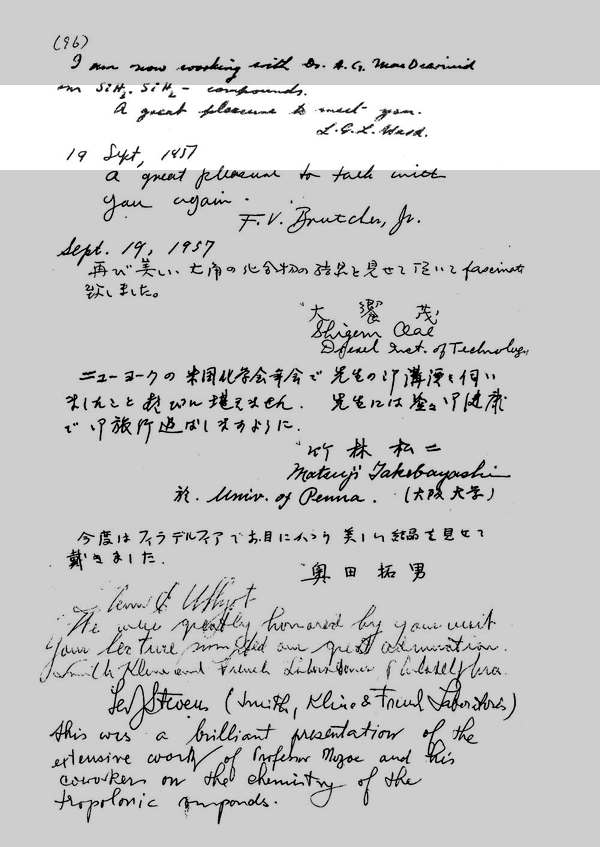 (96)
I am now working with Dr. A. G. MacDiarmid
on SiH2. SiH2 - compounds.
A great pleasure to meet you.
L. G. L.
19 Sept, 1957
A great pleasure to talk with
you again.
F. V. Brutcher, Jr.
Sept. 19, 1957
再び美しい大角の化合物の結晶を見せて頂いて fascinate
致しました。
大饗 茂
Shigeru Oae
Drexel Inst. of Technology
ニューヨークの米国化学会年会で先生の御講演を伺い
ましたこと喜びに堪えません. 先生には益々御健康
で御旅行遊ばしますように.
竹林松二
Matsuji Takebayashi
於. Univ. of Penna. (大阪大学)
今度はフィラデルフィアでお目にかかり美しい結晶を見せて
戴きました.
奥田拓男
We were greatly honored by your visit
Your lecture our great admiration.
Smith Kline and French Laboratories Philadelphia.
Stevens (Smith, Kline & French Laboratories)
This was a brilliant presentation of the
extensive work of Professor Nozoe and his
coworkers on the chemistry of the
tropolonic compounds.